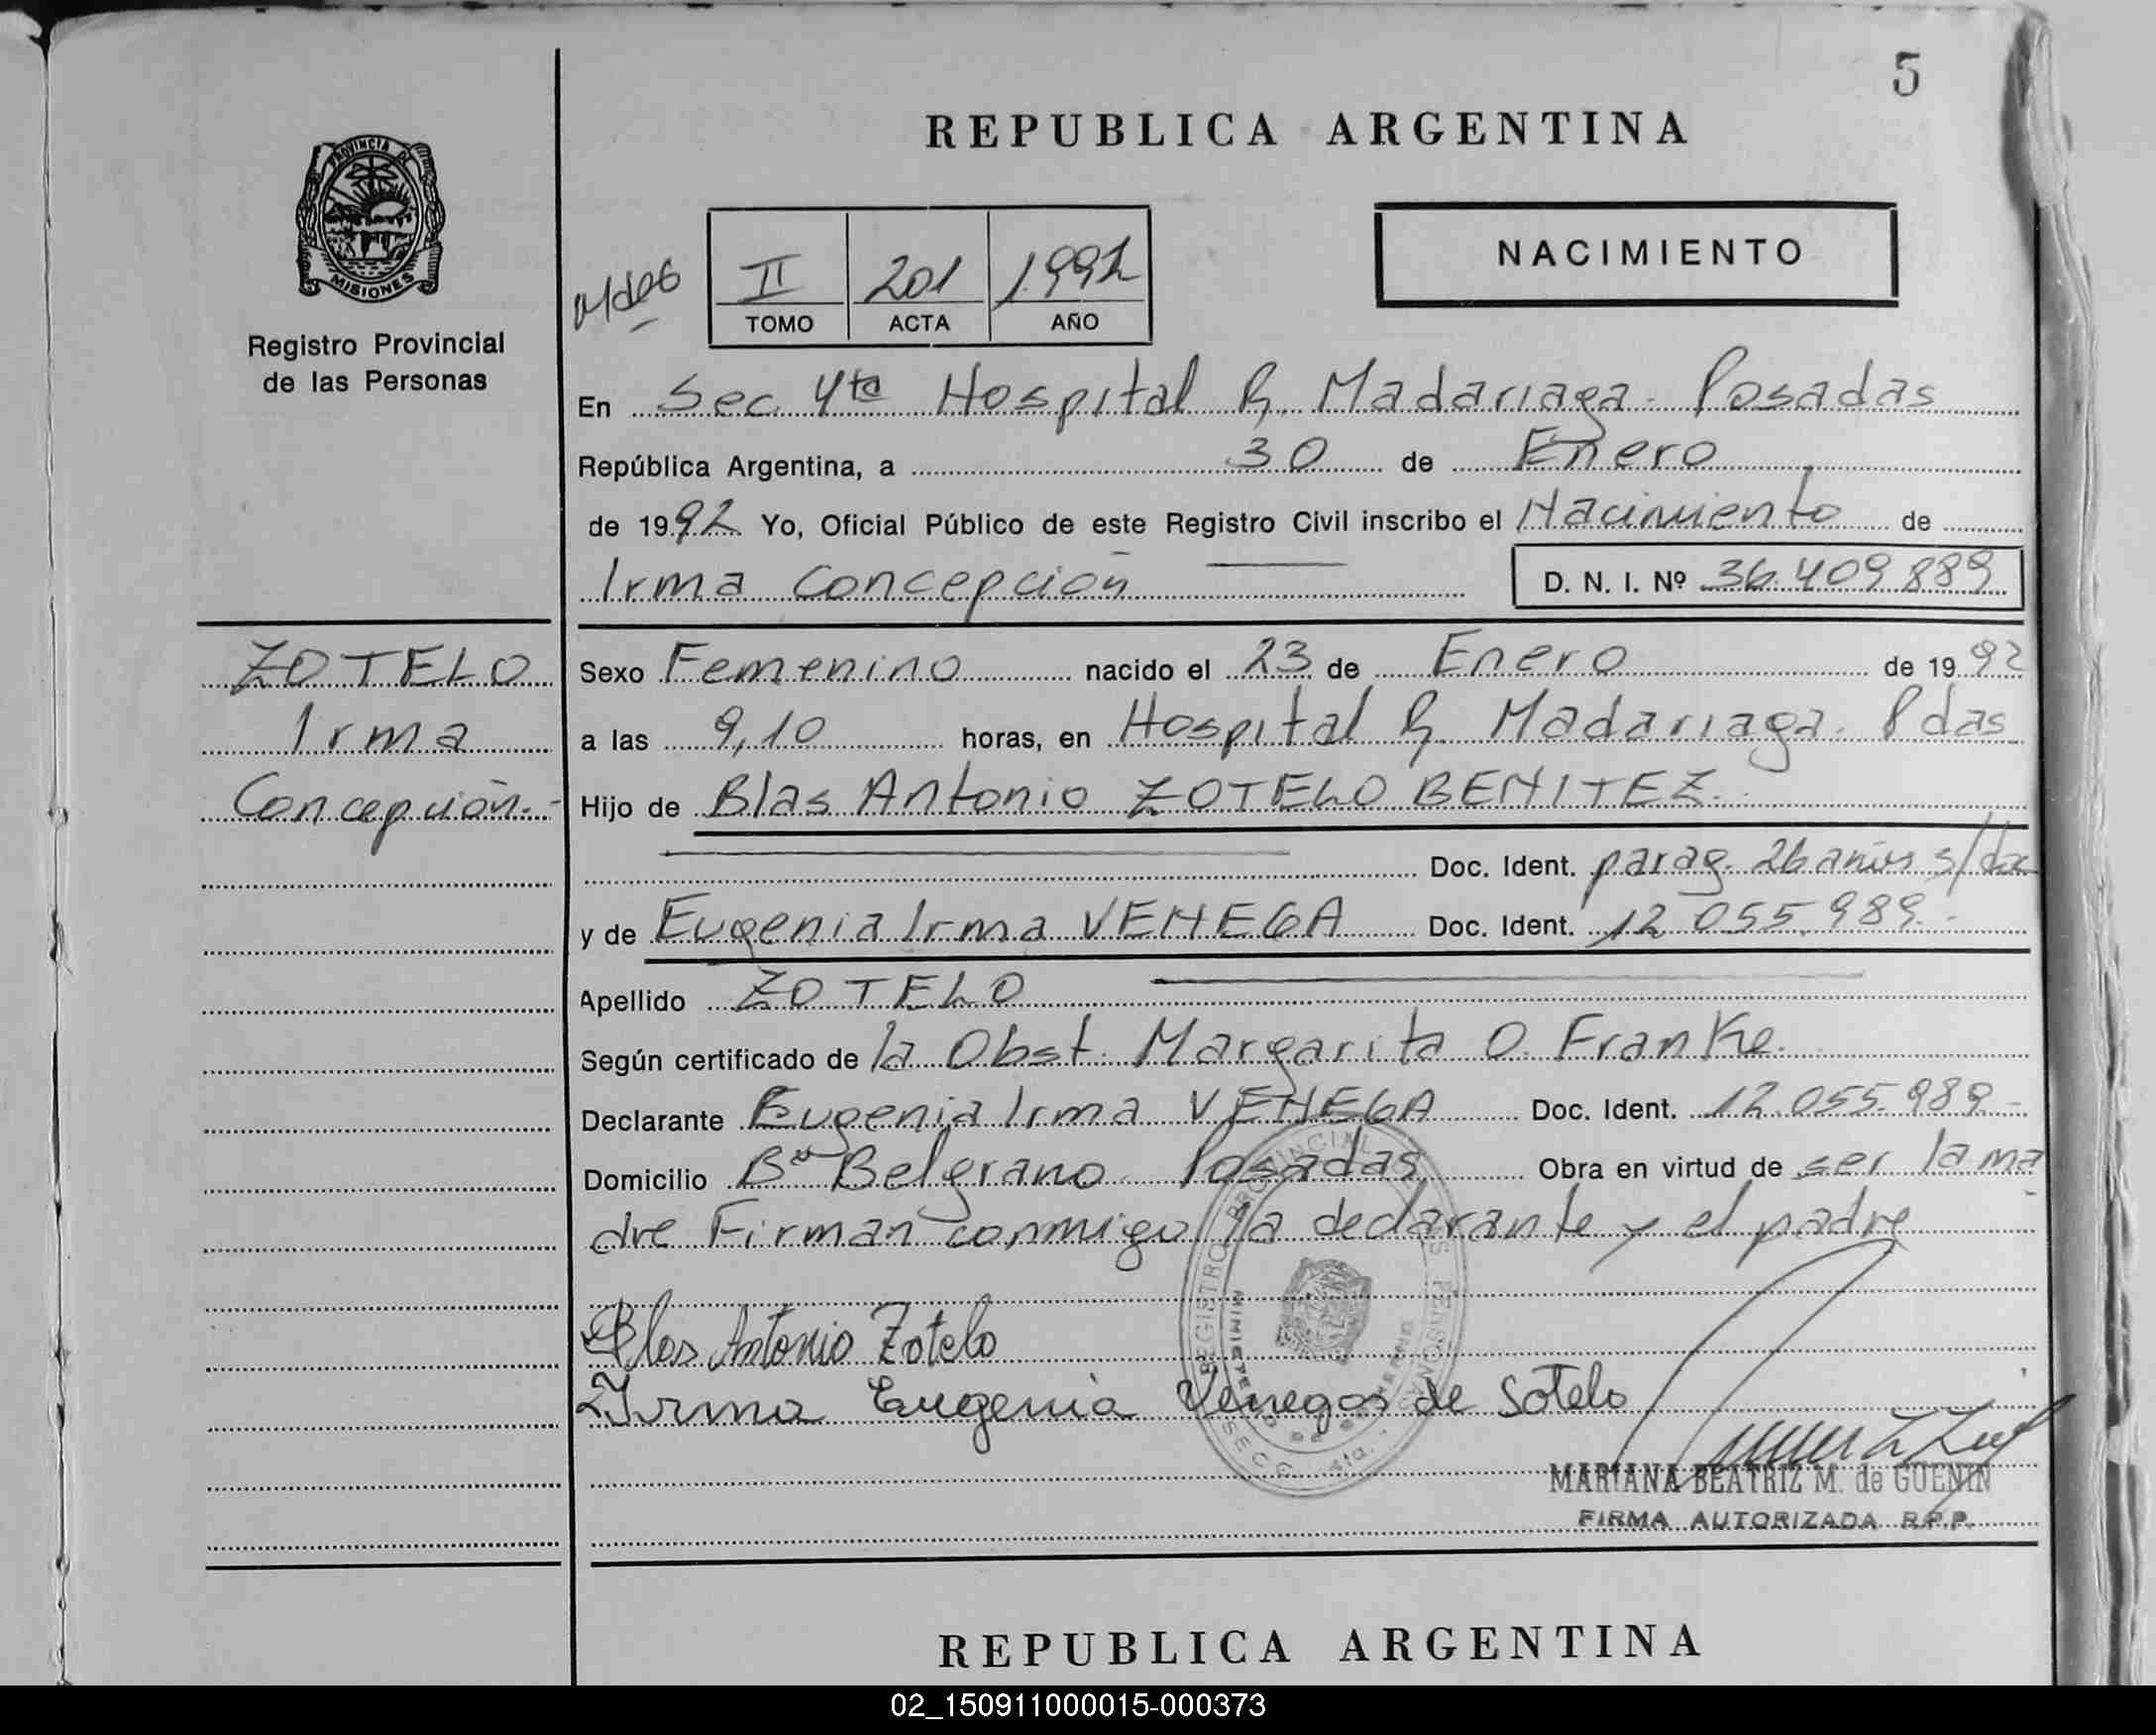 5
REPUBLICA ARGENTINA
PROVINCIA DE
MISIONES
Registro Provincial
de las Personas
NACIMIENTO
II 201 1992
TOMO ACTA AÑO
En Sec 4ta Hospital R. Madariaga - Posadas
República Argentina, a 30 de Enero
de 1992 Yo, Oficial Público de este Registro Civil inscribo el Nacimiento de
Irma Concepción D. N. I. Nº 36.409.889
ZOTELO
Irma
Concepción.-
Sexo Femenino nacido el 23 de Enero de 1992
a las 9,10 horas, en Hospital R. Madariaga. Pdas
Hijo de Blas Antonio ZOTELO BENITEZ.
Doc. Ident. parag. 26 años s/doc
y de Eugenia Irma VENEGA Doc. Ident. 12.055.989.-
Apellido ZOTELO
Según certificado de la Obst. Margarita O. Franke.
Declarante Eugenia Irma VENEGA Doc. Ident. 12.055.989-
Domicilio Bº Belgrano Posadas Obra en virtud de ser la ma
dre Firman conmigo la declarante y el padre
Blas Antonio Zotelo
Irma Eugenia Venegas de Sotelo
REGISTRO PROVINCIAL DE LAS PERSONAS
MINISTERIO DE GOBIERNO
SECC. 4ta.
MARIANA BEATRIZ M. de GUENIN
FIRMA AUTORIZADA R.P.P.
REPUBLICA ARGENTINA
02_150911000015-000373